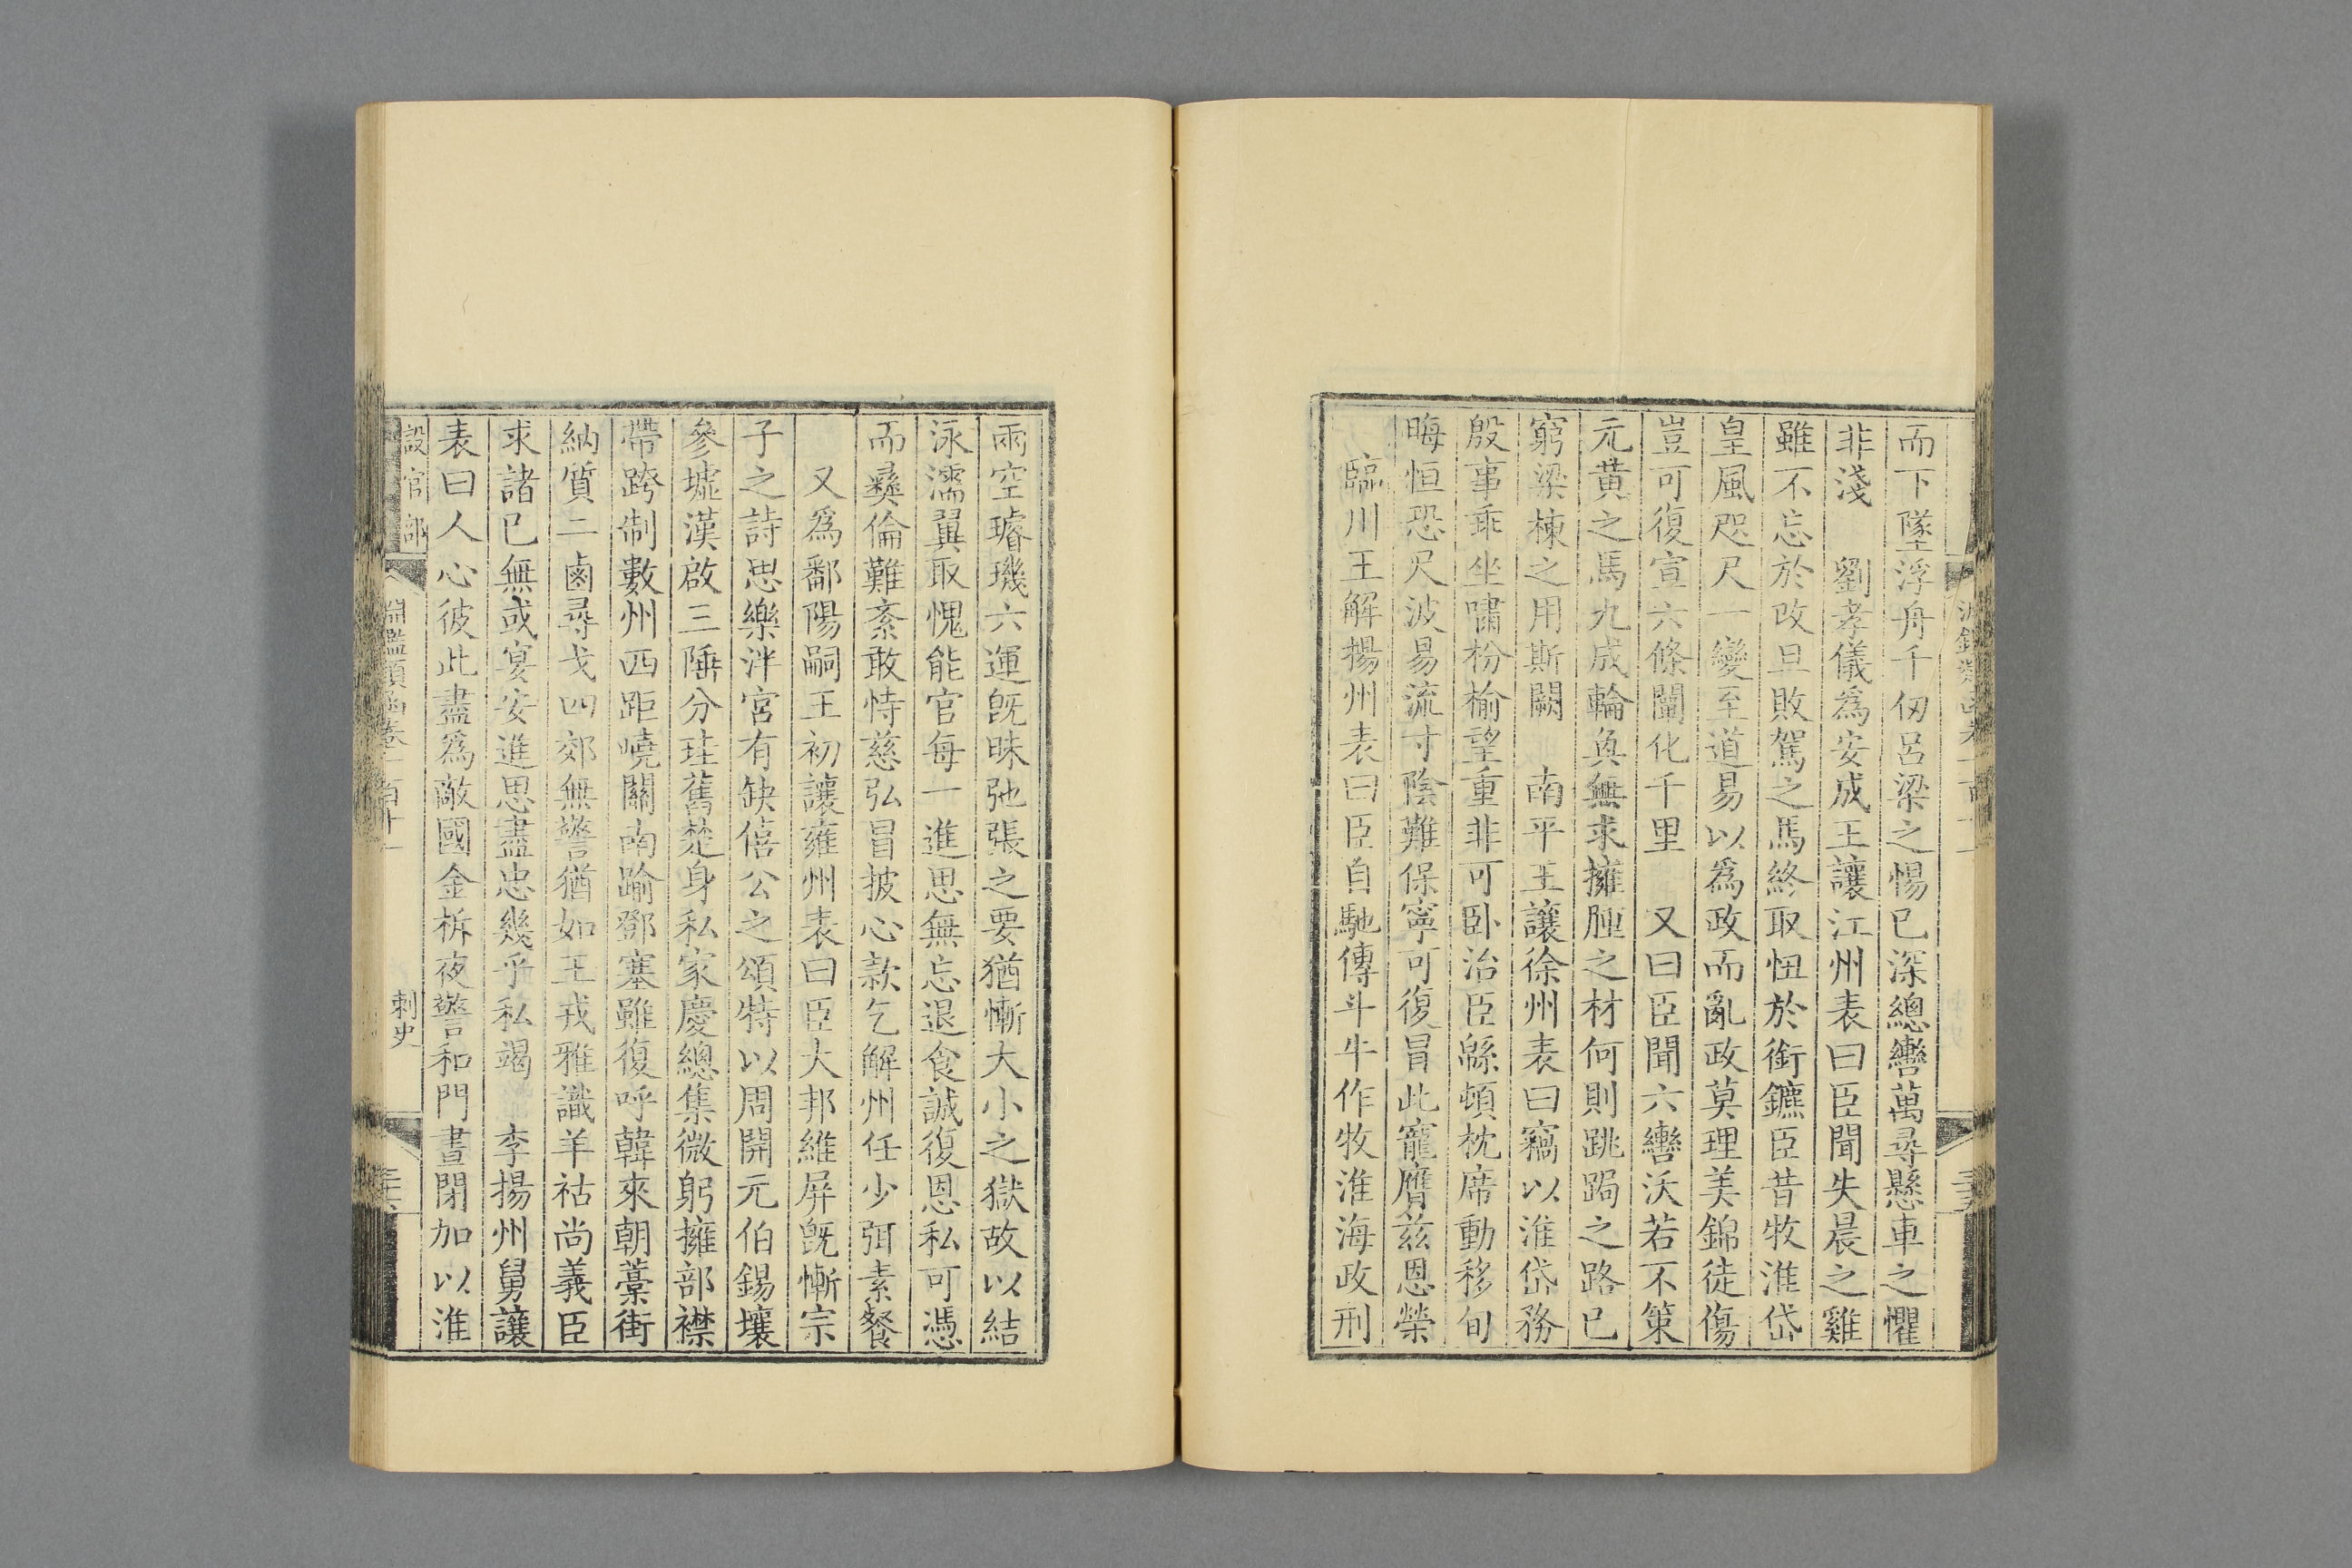 而下墜浮舟千仞呂梁之惕已深總轡萬尋懸車之懼
非淺　劉孝儀爲安成王讓江州表曰臣聞失晨之雞
雖不忘於改旦敗駕之馬終取忸於銜鑣臣昔牧淮岱
皇風咫尺一變至道易以爲政而亂政莫理美錦徒傷
豈可復宣六條闡化千里　又曰臣聞六轡沃若不策
元黃之馬九成輪奐無求擁腫之材何則跳跼之路已
窮梁棟之用斯闕　南平王讓徐州表曰竊以淮岱務
殷事乖坐嘯枌榆望重非可卧治臣緜頓枕席動移旬
晦恒恐尺波易流寸陰難保寧可復冒此寵膺茲恩榮
臨川王解揚州表曰臣自馳傳斗牛作牧淮海政刑
雨空璿璣六運旣昧弛張之要猶慚大小之獄故以結
泳濡翼取愧能官每一進思無忘退食誠復恩私可憑
而彝倫難紊敢恃慈弘冒披心款乞解州任少弭素餐
又爲鄱陽嗣王初讓雍州表曰臣大邦維屏旣慚宗
子之詩思樂泮宮有缺僖公之頌特以周開元伯錫壤
參墟漢啟三陲分珪舊楚身私家慶總集微躬擁部襟
帶跨制數州西距嶢關南踰鄧塞雖復呼韓來朝藁街
納質二鹵尋戈四郊無警猶如王戎雅識羊祜尚義臣
求諸已無或宴安進思盡忠幾乎私竭　李揚州舅讓
表曰人心彼此盡爲敵國金柝夜警和門晝閉加以淮
設官部
淵鑑類函卷一百十一
刺史